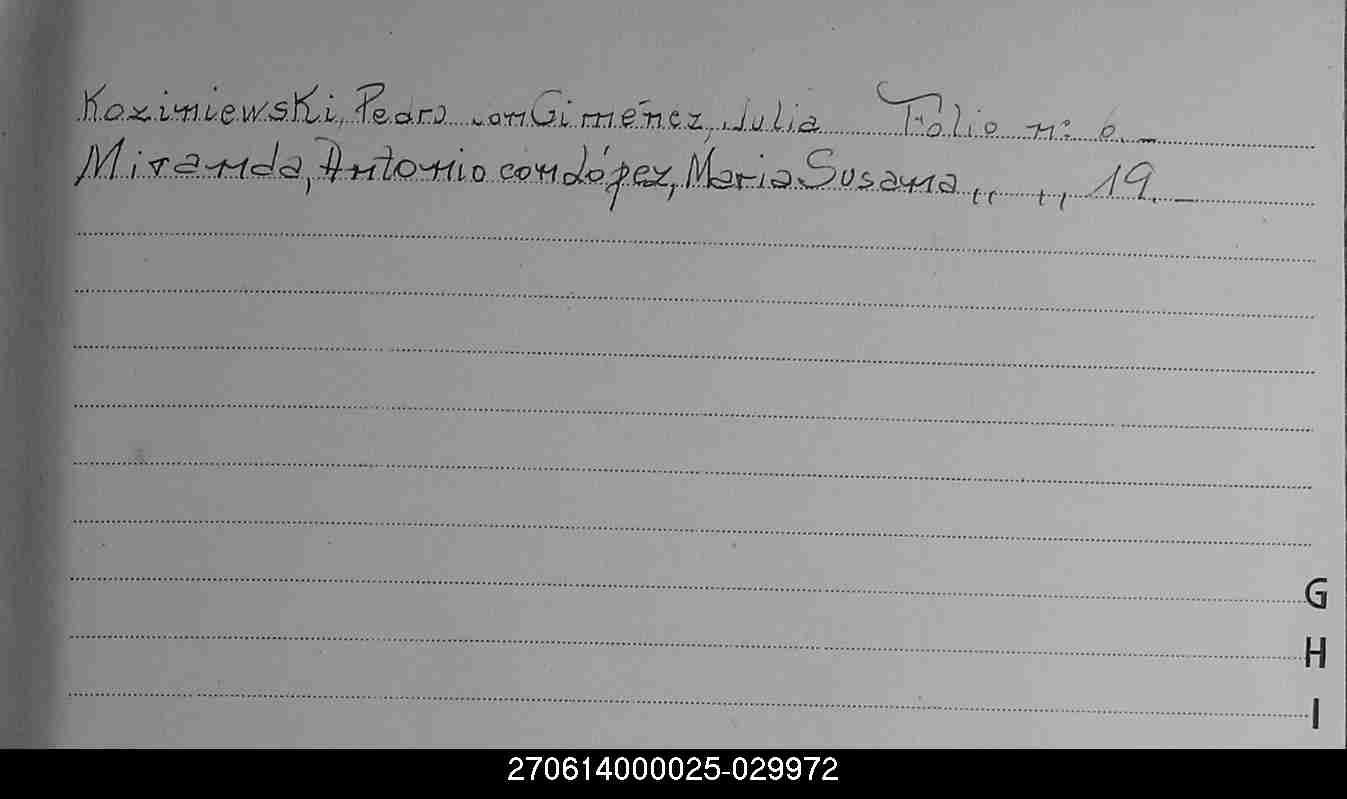 Kozimiewski, Pedro con Giménez, Julia Folio nº 6.-
Miranda, Antonio con López, Maria Susana ,, ,, 19.-
G
H
I
270614000025-029972